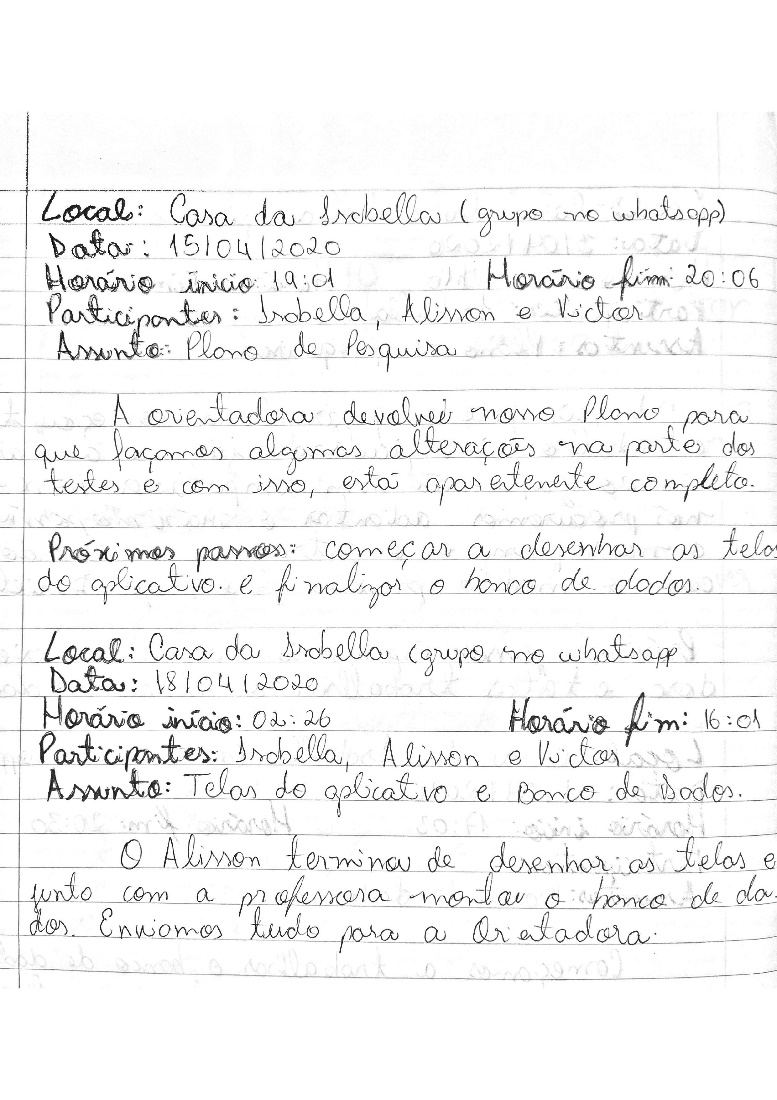 Local: Casa da Isabella (grupo no whatsapp)
Data: 15/04/2020
Horário início 19:01 Horário fim: 20:06
Participantes: Isabella, Alisson e Victor
Assunto: Plano de Pesquisa
A orientadora devolveu nosso Plano para
que façamos algumas alterações na parte dos
testes e com isso, está apartenente completo.
Próximos passos: começar a desenhar as telas
do aplicativo. e finalizar o banco de dados.
Local: Casa da Isabella (grupo no whatsapp
Data: 18/04/2020
Horário início: 02:26 Horário fim: 16:01
Participantes: Isabella, Alisson e Victor
Assunto: Telas do aplicativo e Banco de dados.
O Alisson terminou de desenhar as telas e
junto com a professora montou o banco de da-
dos. Enviamos tudo para a Orientadora.